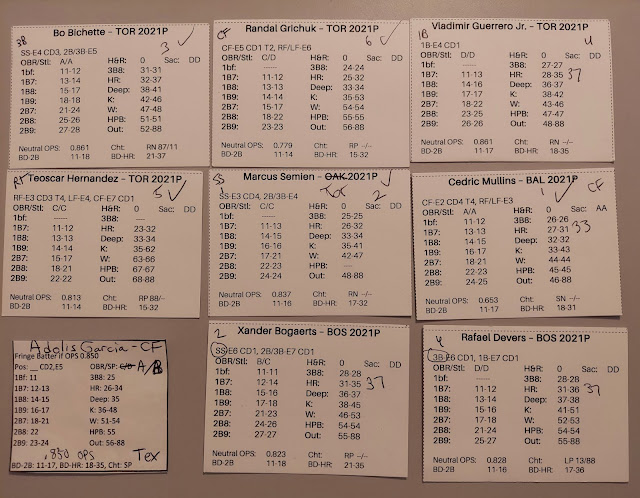 Bo Bichette - TOR 2021P
3B
SS-E4 CD3, 2B/3B-E5
OBR/Stl: A/A H&R: 0 Sac: DD
1bf: 11-12 3B8: 31-31
1B7: 13-14 HR: 32-37
1B8: 15-17 Deep: 38-41
1B9: 18-18 K: 42-46
2B7: 21-24 W: 47-48
2B8: 25-26 HPB: 51-51
2B9: 27-28 Out: 52-88
Neutral OPS: 0.861 Cht: RN 87/11
BD-2B 11-18 BD-HR: 21-37
Randal Grichuk - TOR 2021P
CF 6
CF-E5 CD1 T2, RF/LF-E6
OBR/Stl: C/D H&R: 0 Sac: DD
1bf: ------ 3B8: 24-24
1B7: 11-12 HR: 25-32
1B8: 13-13 Deep: 33-34
1B9: 14-14 K: 35-53
2B7: 15-17 W: 54-54
2B8: 18-22 HPB: 55-55
2B9: 23-23 Out: 56-88
Neutral OPS: 0.779 Cht: RP -/--
BD-2B 11-14 BD-HR: 15-32
Vladimir Guerrero Jr. - TOR 2021P
1B 4
1B-E4 CD1
OBR/Stl: D/D H&R: 0 Sac: DD
1bf: ------ 3B8: 27-27
1B7: 11-13 HR: 28-35 37
1B8: 14-16 Deep: 36-37
1B9: 17-17 K: 38-42
2B7: 18-22 W: 43-46
2B8: 23-25 HPB: 47-47
2B9: 26-26 Out: 48-88
Neutral OPS: 0.961 Cht: RN -/--
BD-2B 11-17 BD-HR: 18-35
Teoscar Hernandez - TOR 2021P
RF 5
RF-E3 CD3 T4, LF-E4, CF-E7 CD1
OBR/Stl: C/C H&R: 0 Sac: DD
1bf: ------ 3B8: ---
1B7: 11-12 HR: 23-32
1B8: 13-13 Deep: 33-34
1B9: 14-14 K: 35-62
2B7: 15-17 W: 63-66
2B8: 18-21 HPB: 67-67
2B9: 22-22 Out: 68-88
Neutral OPS: 0.813 Cht: RP 88/-
BD-2B 11-14 BD-HR: 15-32
Marcus Semien - OAK 2021P
SS TOR 2
SS-E3 CD4, 2B/3B-E4
OBR/Stl: C/C H&R: 0 Sac: DD
1bf: ------ 3B8: 25-25
1B7: 11-13 HR: 26-32
1B8: 14-15 Deep: 33-34
1B9: 16-16 K: 35-41
2B7: 17-21 W: 42-47
2B8: 22-23 HPB: ---
2B9: 24-24 Out: 48-88
Neutral OPS: 0.837 Cht: RN -/--
BD-2B 11-16 BD-HR: 17-32
Cedric Mullins - BAL 2021P
1 CF
CF-E2 CD4 T4, RF/LF-E3
OBR/Stl: A/A H&R: 0 Sac: AA
1bf: 11-12 3B8: 26-26
1B7: 13-13 HR: 27-31 33
1B8: 14-15 Deep: 32-32
1B9: 16-17 K: 33-43
2B7: 18-21 W: 44-44
2B8: 22-23 HPB: 45-45
2B9: 24-25 Out: 46-88
Neutral OPS: 0.653 Cht: SN -/--
BD-2B 11-17 BD-HR: 18-31
Adolis Garcia - CF
Fringe Batter if OPS 0.850
Pos: __ CD2,E5 OBR/SP: C/D A/B
1Bf: 11 3B8: 25
1B7: 12-13 HR: 26-34
1B8: 14-15 Deep: 35
1B9: 16-17 K: 36-48
2B7: 18-21 W: 51-54
2B8: 22 HPB: 55
2B9: 23-24 Out: 56-88
.850 OPS Tex
BD-2B: 11-17, BD-HR: 18-35, Cht: SP
Xander Bogaerts - BOS 2021P
2
SS-E6 CD1, 2B/3B-E7 CD1
OBR/Stl: B/C H&R: 0 Sac: DD
1bf: 11-11 3B8: ---
1B7: 12-14 HR: 31-35 37
1B8: 15-16 Deep: 36-37
1B9: 17-18 K: 38-45
2B7: 21-23 W: 46-53
2B8: 24-26 HPB: 54-54
2B9: 27-27 Out: 55-88
Neutral OPS: 0.823 Cht: RP -/--
BD-2B 11-18 BD-HR: 21-35
Rafael Devers - BOS 2021P
4
3B-E6 CD1, 1B-E7 CD1
OBR/Stl: D/C H&R: 0 Sac: DD
1bf: ------ 3B8: 28-28
1B7: 11-12 HR: 31-36 37
1B8: 13-14 Deep: 37-38
1B9: 15-16 K: 41-51
2B7: 17-18 W: 52-53
2B8: 21-24 HPB: 54-54
2B9: 25-27 Out: 55-88
Neutral OPS: 0.828 Cht: LP 13/88
BD-2B 11-16 BD-HR: 17-36